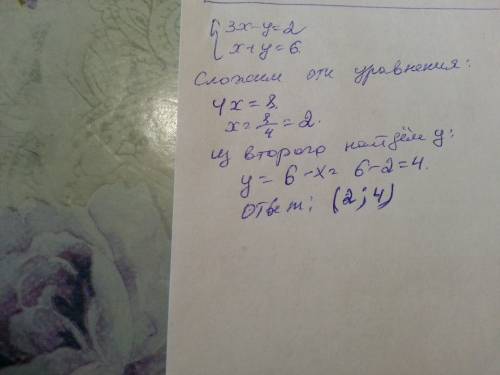 {3x-y=2
x+y=6.
Сложим эти уравнения:
4x=8.
x=8/4=2.
Из второго найдём y:
y=6-x=6-2=4.
Ответ: (2;4)